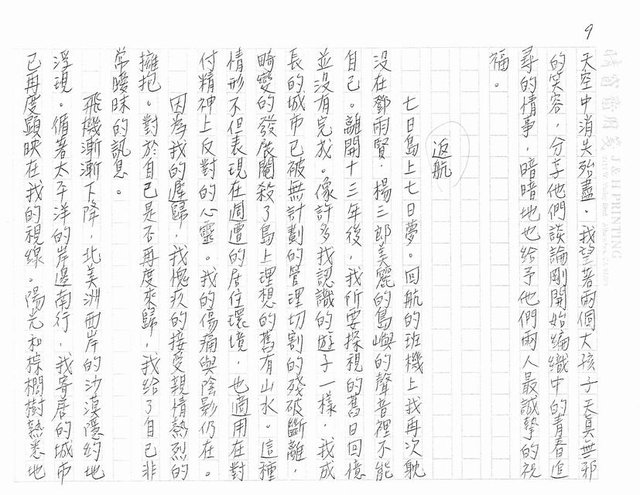 9
天空中消失殆盡。我望著兩個大孩子天真無邪
的笑容，分享他們談論剛開始編織中的青春追
尋的情事，暗暗地也給予他們兩人最誠摯的祝
福。
返航
七日島上七日夢。回航的班機上我再次耽
沒在鄧雨賢、楊三郎美麗的島嶼的聲音裡不能
自己。離開十三年後，我所要探視的舊日回憶
並沒有完成。像許多我認識的遊子一樣，我成
長的城市已被無計劃的管理切割的殘破斷離，
畸變的發展閹殺了島上理想的舊有山水。這種
情形不但表現在週遭的居住環境，也適用在對
付精神上反對的心靈。我的傷痛與陰影仍在。
因為我的遲歸，我愧疚的接受親情熱烈的
擁抱。對於自己是否再度來歸，我給了自己非
常曖昧的訊息。
飛機漸漸下降，北美洲西岸的沙漠隱約地
浮現。循著太平洋的岸邊南行，我寄居的城市
已再度顯映在我的視線。陽光和棕櫚樹熟悉地